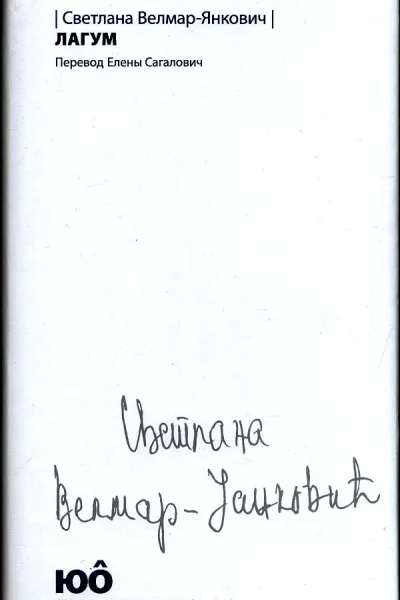 | Светлана Велмар-Янкович |
ЛАГУМ
Перевод Елены Сагалович
Светлана
Велмар-Јанковић
юо̂